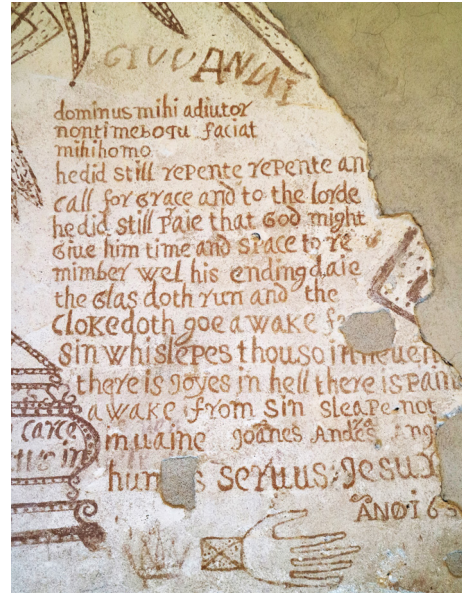 GIVVANNI
dominus mihi adiutor
non timebo qu faciat
mihi homo
he did still repente repente an
call for grace and to the lorde
he did still Paie that God might
Giue him time and space to re
mimber wel his ending daie
the Glas doth run and the
cloke doth goe awake f
Sin whi slepes thou so in heuen
there is Joyes in hell there is pain
awake from sin sleape not
in uaine Joānes Andẽs Ang
hum s seruus Jesu
ĀNO 16